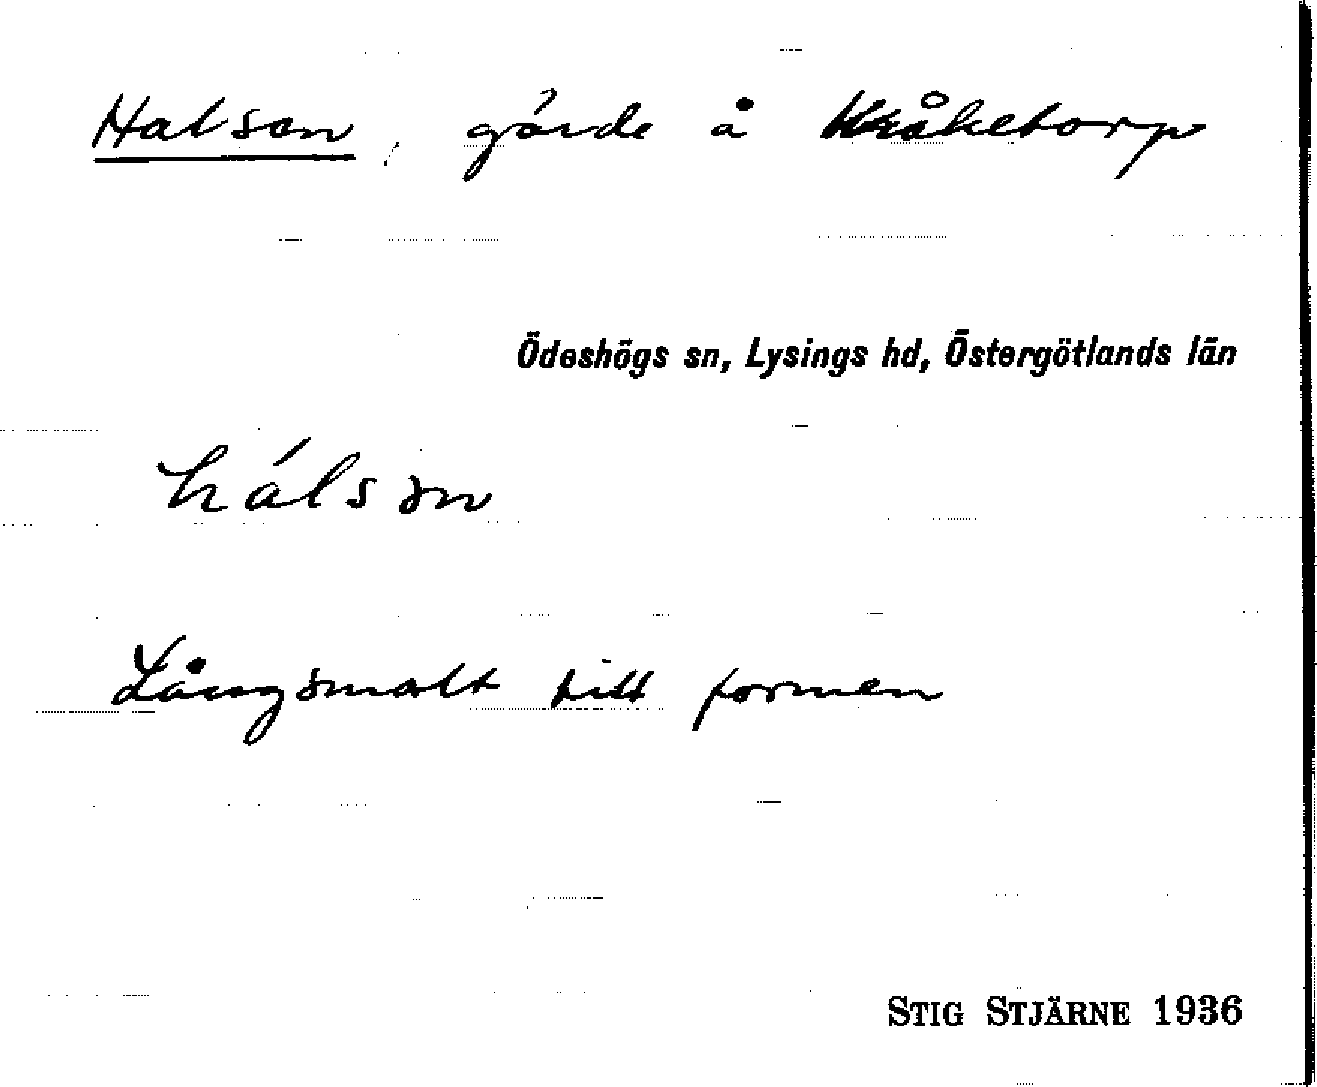 Halsen, gärde å Kråketorp
Ödeshögs sn, Lysings hd, Östergötlands län
hálsən
Långsmalt till formen
STIG STJÄRNE 1936